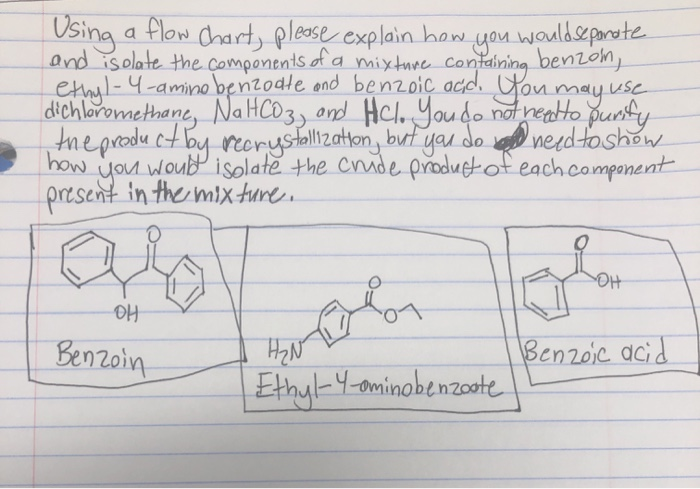 Using a flow chart, please explain how you would separate
and isolate the components of a mixture containing benzoin,
ethyl-4-aminobenzoate and benzoic acid. You may use
dichloromethane, NaHCO3, and HCl. You do not need to purify
the product by recrystallization, but you do need to show
how you would isolate the crude product of each component
present in the mixture.
O
OH
Benzoin
O
O
H2N
Ethyl-4-aminobenzoate
O
OH
Benzoic acid